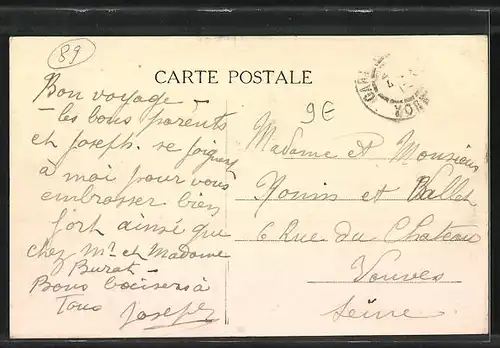 89
CARTE POSTALE
9€
Bon voyage -
- les bons parents
et Joseph. se joignent
à moi pour vous
embrasser bien
fort ainsi que
chez Mr et Madame
Burat -
Bons baisers à
Tous
Joseph
Madame et Monsieur
et
6 Rue du Chateau
Seine